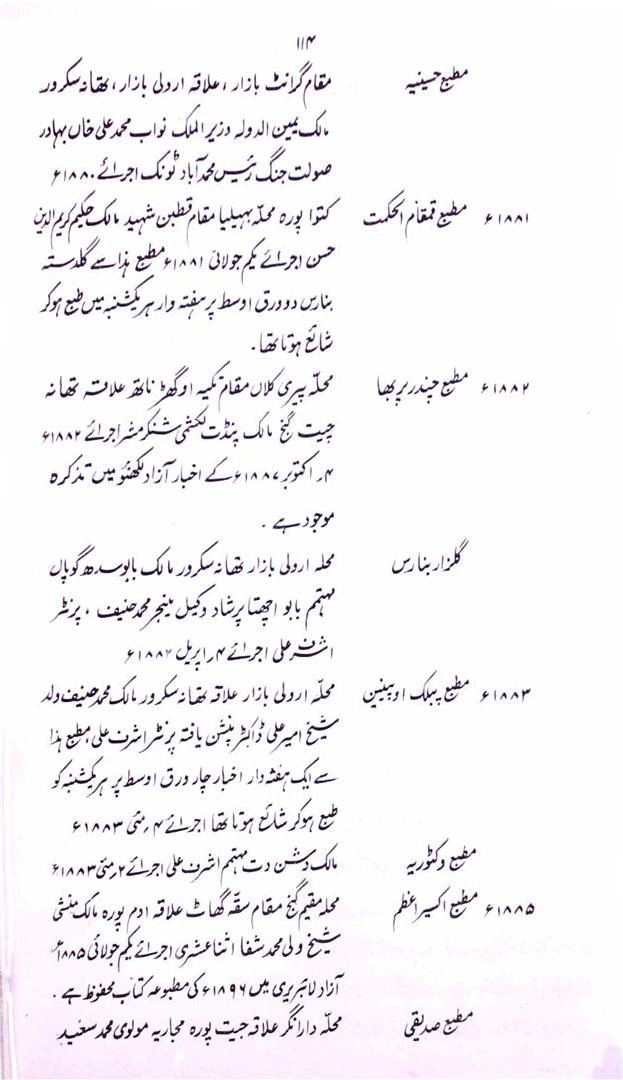 ۱۱۴
مطبع حسینیہ مقام گرانٹ بازار، علاقہ اردلی بازار، تھانہ سکرور
مالک یمین الدولہ وزیر الملک نواب محمد علی خاں بہادر
صولت جنگ رئیس محمد آباد ٹونک اجرائے ۱۸۸۰ء
۱۸۸۱ء مطبع قمقام الحکمت کتوا پورہ محلہ بہیلیا مقام قطبن شہید مالک حکیم کریم الدین
حسن اجرائے یکم جولائی ۱۸۸۱ء مطبع ہذا سے گلدستہ
بنارس دو ورق اوسط پر ہفتہ وار ہر یکشنبہ میں طبع ہوکر
شائع ہوتا تھا۔
۱۸۸۲ء مطبع چندر پربھا محلہ پیری کلاں مقام تکیہ اوگھڑ ناتھ علاقہ تھانہ
چیت گنج مالک پنڈت لکشمی شنکر مشر اجرائے ۱۸۸۲ء
۴ اکتوبر ۱۸۸۷ء کے اخبار آزاد لکھنؤ میں تذکرہ
موجود ہے۔
گلزار بنارس محلہ اردلی بازار تھانہ سکرور مالک بابو سدھ گوپال
مہتمم بابو اچھتا پرشاد وکیل مینجر محمد حنیف، پرنٹر
اشرف علی اجرائے ۴ اپریل ۱۸۸۲ء
۱۸۸۳ء مطبع پبلک اوپینین محلہ اردلی بازار علاقہ تھانہ سکرور مالک محمد حنیف ولد
شیخ امیر علی ڈاکٹر پنشن یافتہ پرنٹر اشرف علی، مطبع ہذا
سے ایک ہفتہ وار اخبار چار ورق اوسط پر ہر یکشنبہ کو
طبع ہوکر شائع ہوتا تھا اجرائے ۴ مئی ۱۸۸۳ء
مطبع وکٹوریہ مالک دشن دت مہتمم اشرف علی اجرائے ۲ مئی ۱۸۸۳ء
۱۸۸۵ء مطبع اکسیر اعظم محلہ مقیم گنج مقام سقہ گھاٹ علاقہ ادم پورہ مالک منشی
شیخ ولی محمد شفا اثنا عشری اجرائے یکم جولائی ۱۸۸۵ء
آزاد لائبریری میں ۱۸۹۶ء کی مطبوعہ کتاب محفوظ ہے۔
مطبع صدیقی محلہ دارانگر علاقہ جیت پورہ مجاریہ مولوی محمد سعید